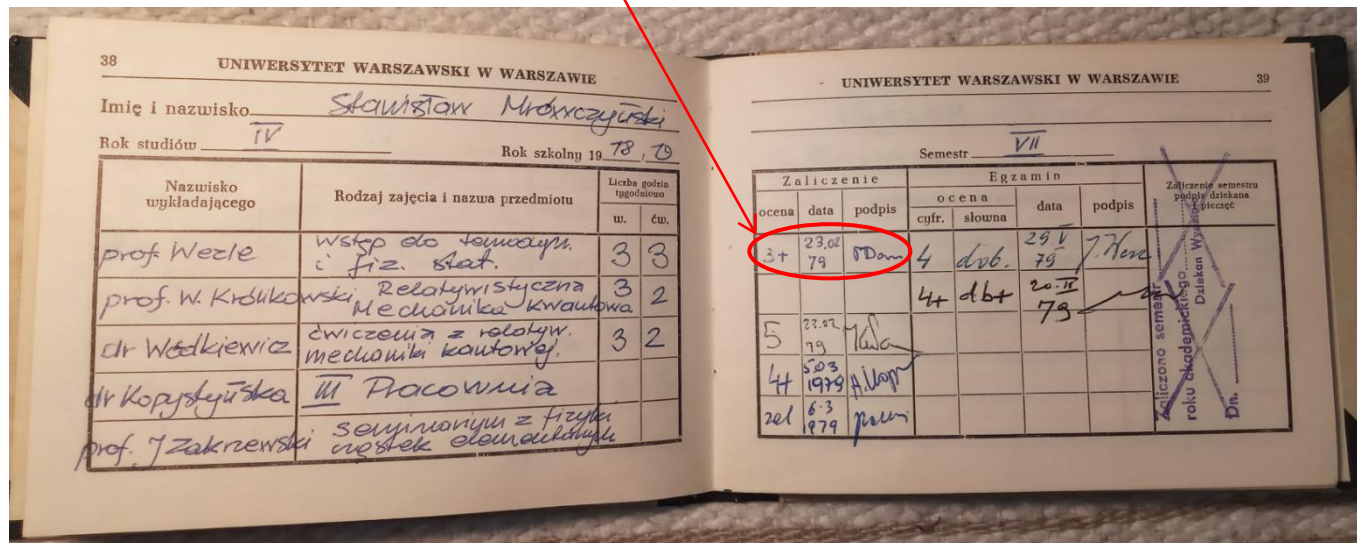 38
UNIWERSYTET WARSZAWSKI W WARSZAWIE
Imię i nazwisko Stanisław Mrówczyński
Rok studiów IV
Rok szkolny 19 78, 79
Nazwisko wykładającego
Rodzaj zajęcia i nazwa przedmiotu
Liczba godzin tygodniowo
w. ćw.
prof. Werle
Wstęp do termodyn.
i fiz. stat.
3 3
prof. W. Królikowski
Relatywistyczna
Mechanika Kwantowa
3 2
dr Wódkiewicz
ćwiczenia z relatyw.
mechaniki kwantowej.
3 2
dr Kopystyńska
III Pracownia
prof. J Zakrzewski
Seminarium z fizyki
cząstek elementarnych
UNIWERSYTET WARSZAWSKI W WARSZAWIE
39
Semestr VII
Zaliczenie
Egzamin
Zaliczenie semestru
podpis dziekana
i pieczęć
ocena data podpis
ocena
cyfr. słowna
data podpis
3+ 23.02 79
4 dob. 29.V 79
4+ db+ 20.II 79
5 23.02. 79
4+ 5.03 1979 A.Kop
zal 6.3 1979
Zaliczono semestr
roku akademickiego
Dziekan
Dn.